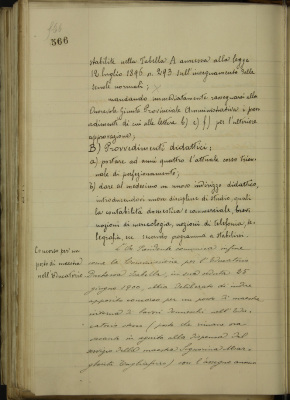 566
stabilite nella Tabella A annessa alla legge
12 luglio 1896 n. 293 sull'insegnamento nelle
scuole normali;
mandando immediatamente rassegnarsi alla
Onorevole Giunta Provinciale Amministrativa i prov
vedimenti di cui alle lettere b) e) f) per l'ulteriore
approvazione;
B) Provvedimenti didattici;
a) portare ad anni quattro l'attuale corso trien-
nale di perfezionamento;
b) dare al medesimo un nuovo indirizzo didattico,
introducendovi nuove discipline di studio quali
la contabilità domestica e commerciale, le
nozioni di nozioni di telefonia, te-
legrafia, ecc. secondo programma a stabilirsi.
Concorso per un
posto di maestra
nell'Educatorio
Il Presidente comunica infine
come la Commissione per l'Educatorio
Duchessa Isabella, in sua seduta 28
giugno 1900, abbia deliberato di indire
apposito concorso per un posto di maestra
interna di lavori femminili nell'Edu-
catorio stesso (posto che rimane va-
cante in seguito alla dispensa dal
servizio della maestra Signorina Mar-
gherita) con l'assegno annuo